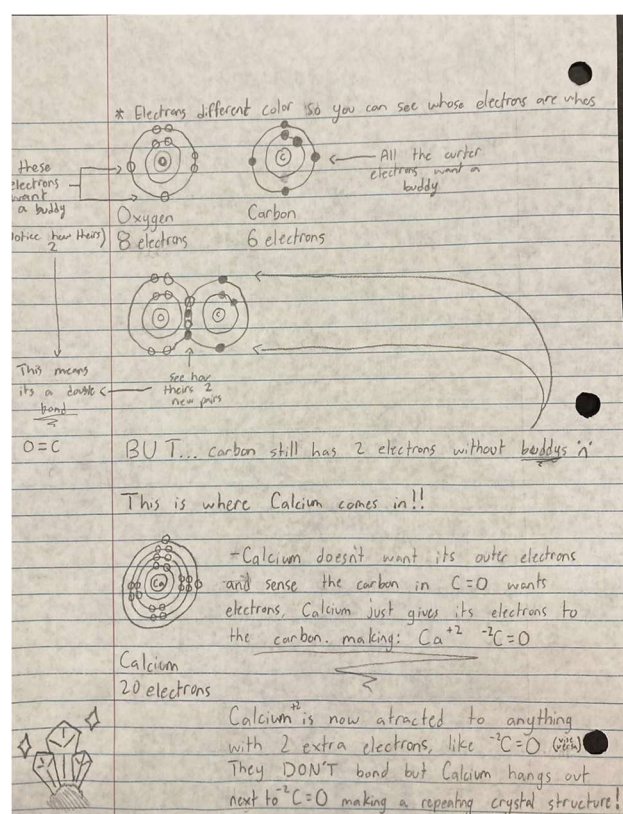 * Electrons different color so you can see whose electrons are whos
these
electrons
want
a buddy
O
C
All the outer
electrons want a
buddy
Oxygen
Carbon
8 electrons
6 electrons
notice how theirs)
2
O
C
This means
its a double
bond
see how
theirs 2
new pairs
O=C
BUT... carbon still has 2 electrons without buddys
This is where Calcium comes in!!
Ca
-Calcium doesn't want its outer electrons
and sense the carbon in C=O wants
electrons, Calcium just gives its electrons to
the carbon. making: Ca+2 -2C=O
Calcium
20 electrons
Calcium+2 is now atracted to anything
with 2 extra electrons, like -2C=O. (vise versa)
They DON'T bond but Calcium hangs out
next to -2C=O making a repeating crystal structure!